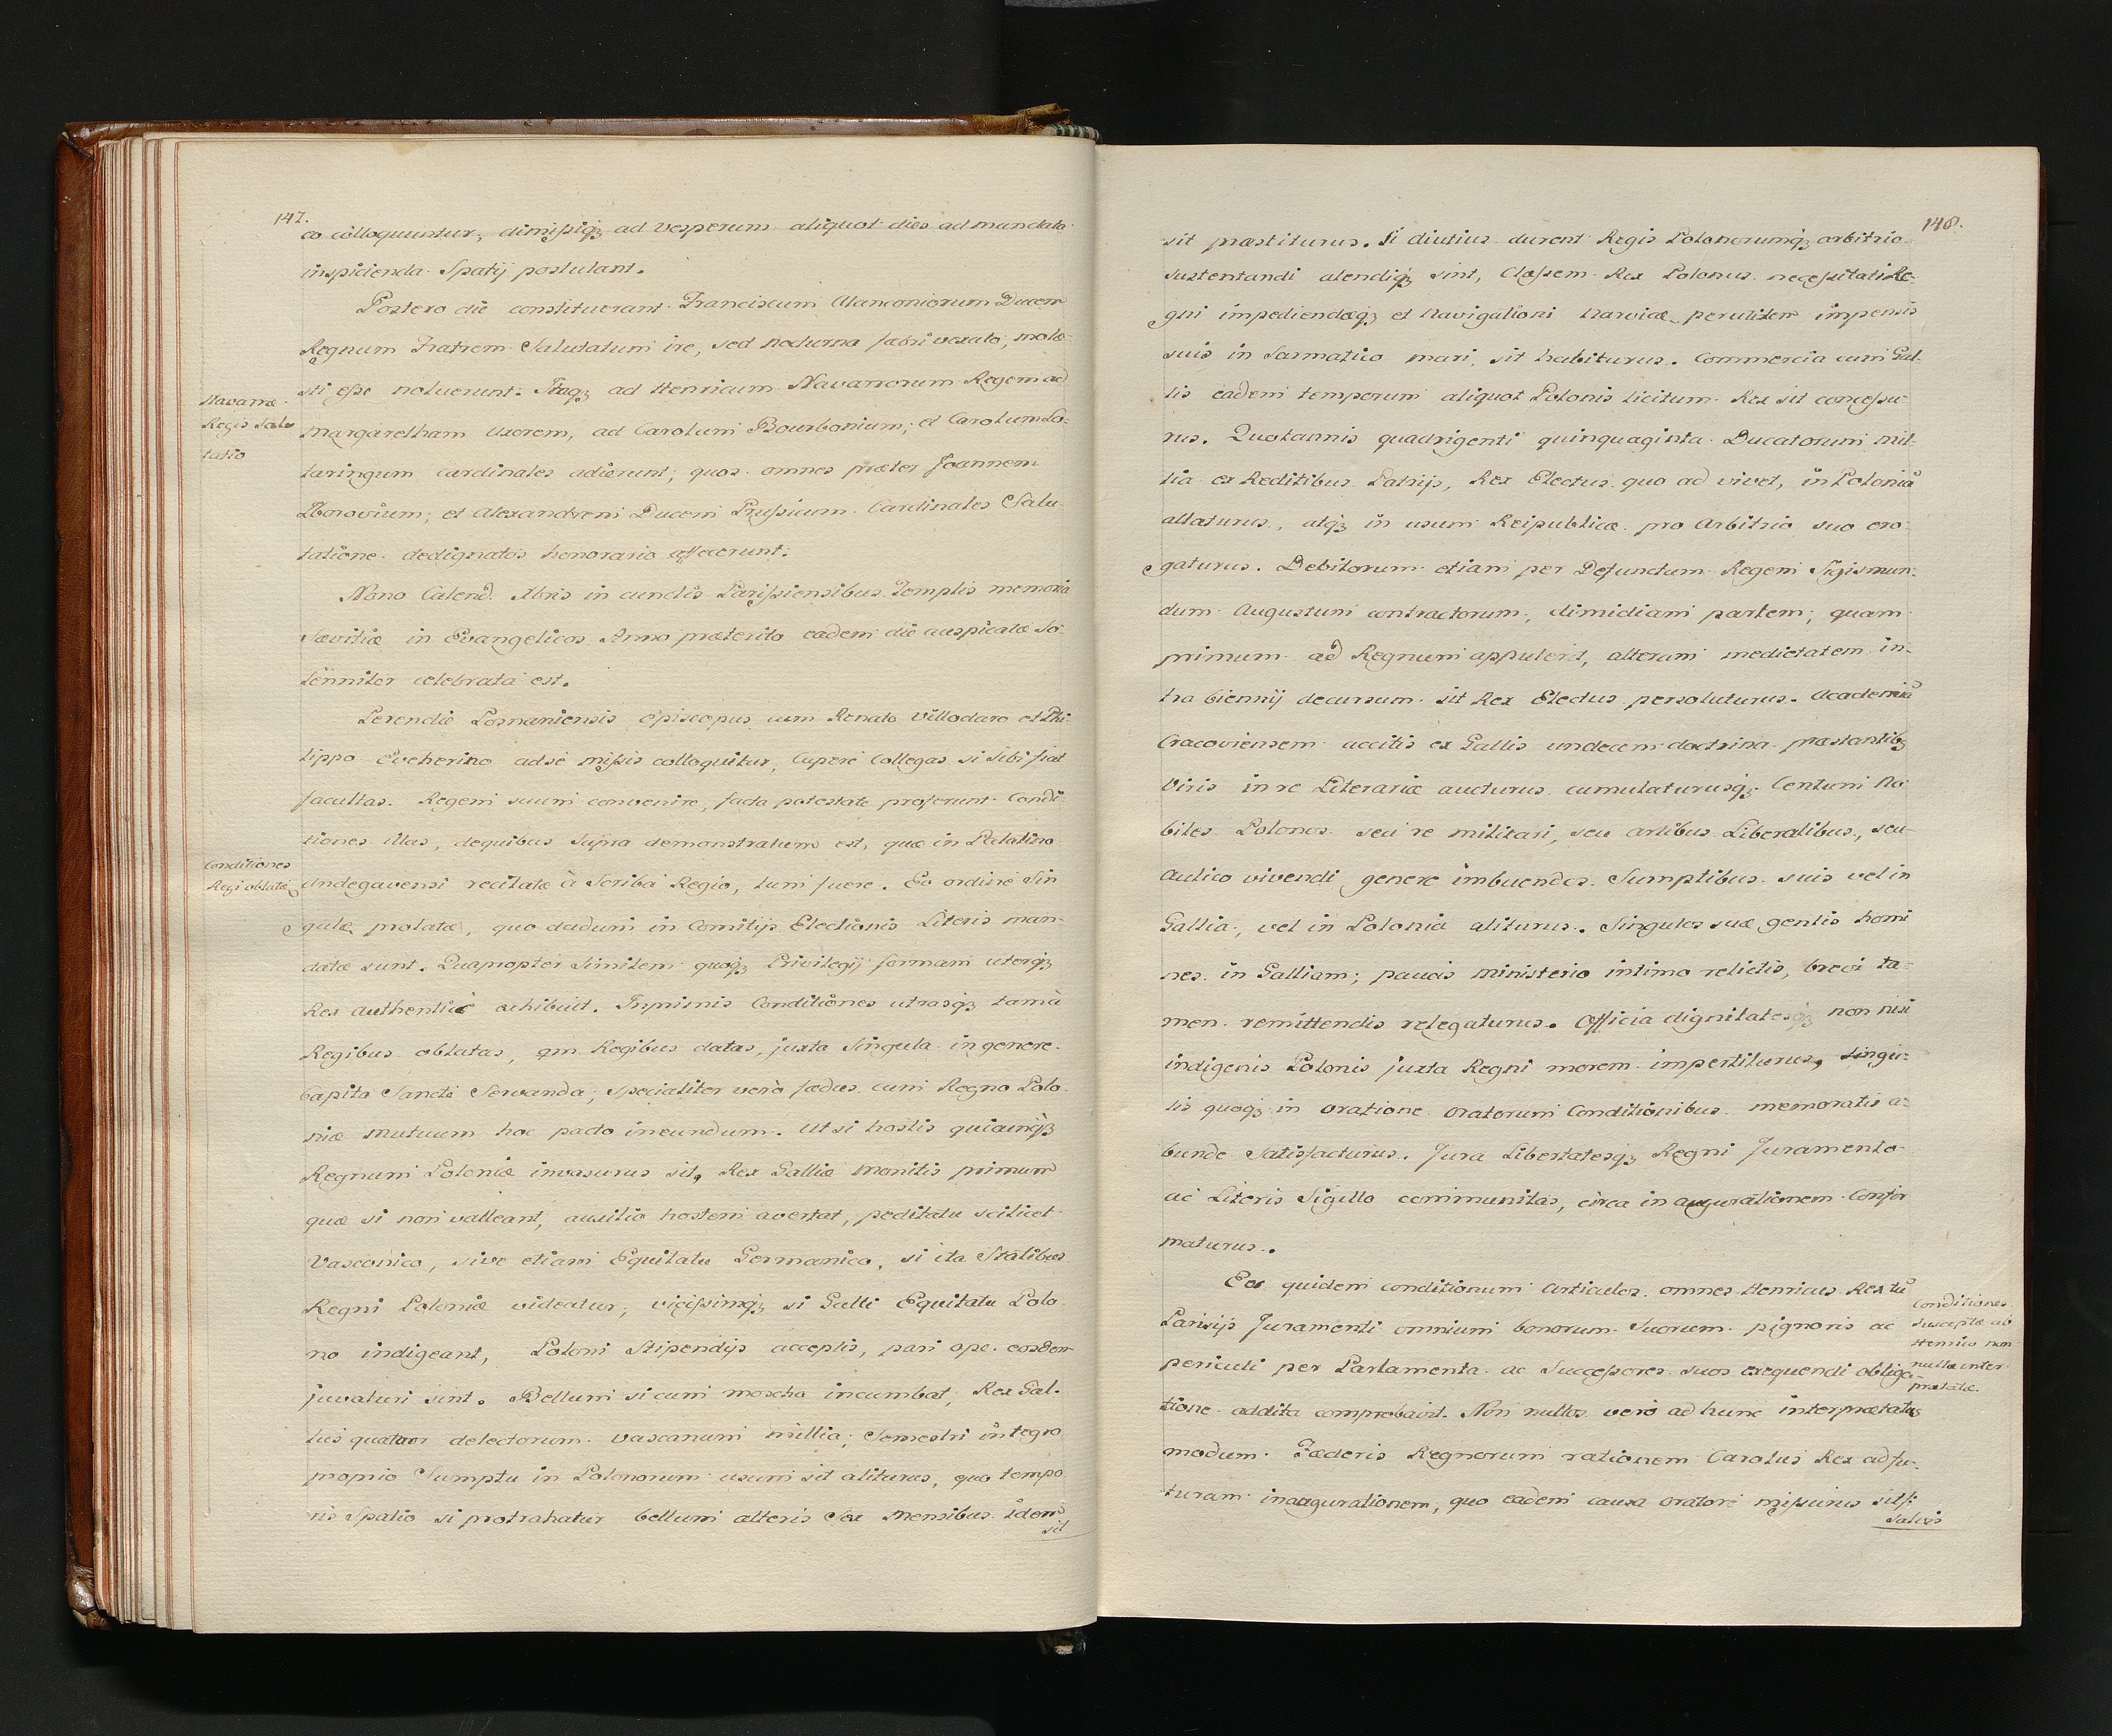 147.
eo colloquuntur, dimissiq₃ ad vesperum aliquot dies ad mandata
inspicienda Spatij postulant.
Postero die constituerant Franciscum Alanconiorum Ducem
Regnum Fratrem Salutatum ire, sed nocturna febri vexato, mole-
sti esse noluerunt. Itaq₃ ad Henricum Navarrorum Regem ad
Navarræ
Regis Salu
tatio
Margaretham Uxorem, ad Carolum Bourbonium, et Carolum Lo-
taringum Cardinales adierunt; quos omnes præter Joannem
Zborovium, et Alexandrem Ducem Prussicum Cardinales Salu-
tatione dedignatos honorario affecerunt.
Nono Calend. Xbris in cunctis Parissiensibus Templis memoria
sævitiæ in Evangelicos Anno præterito eadem die auspicatæ So-
lenniter celebrata est.
Perendie Posnaniensis Episcopus cum Renato Villodaro et Phi-
lippo Evcherino ad se missis colloquitur, Cupere Collegas si sibi fiat
facultas. Regem suum convenire, facta potestate proferunt Condi-
tiones illas, de quibus Supra demonstratum est, quæ in Palatino
Conditiones
Regi oblatæ
Andegavensi recitatæ à Scriba Regio, tum fuere. Eo ordine Sin
gulæ prolatæ, quo dudum in Comitijs Electionis Literis man-
datæ sunt. Quapropter Similem quoq₃ Privilegij formam uterq₃
Rex Authenticè exhibuit. Inprimis Conditiones utrasq₃ tam à
Regibus oblatas, qm Regibus datas, juxta Singula in genere
Capita Sancte Servanda, Specialiter verò fædus cum Regno Polo-
niæ mutuum hoc pacto ineundum. Ut si hostis quicunq₃
Regnum Poloniæ invasurus sit, Rex Galliæ Monitis primum
quæ si non valleant, auxilio hostem avertat, peditatu scilicet
Vasconico, sive etiam Equitatu Germanico, si ita Statibus
Regni Poloniæ videatur, vicissimq₃ si Galli Equitatu Polo-
no indigeant, Poloni Stipendijs acceptis, pari ope eosdem
juvaturi sint. Bellum si cum moscho incumbat, Rex Gal-
lus quatuor delectorum Vascanum millia, Semestri integro
proprio Sumptu in Polonorum usum sit aliturus, quo tempo
ris Spatio si protrahatur bellum alteris Sex Mensibus idem
sit
148.
sit præstiturus. Si diutius durent Regis Polonorumq₃ arbitrio
sustentandi alendiq₃ sint, Classem Rex Polonus necessitati Re-
gni impediendæq₃ et Navigationi Narvicæ perutilem impensis
suis in Sarmatico mari, sit habiturus. Commercia cum Gal-
lis eadem temporum aliquot Polonis licitum Rex sit concessu-
rus. Quotannis quadrigenti quinquaginta Ducatorum mil-
lia ex Reditibus Patrijs, Rex Electus quo ad vivet, in Polonia
allaturus, atq₃ in usum Reipublicæ pro Arbitrio suo ero-
gaturus. Debitorum etiam per Defunctum Regem Sigismun-
dum Augustum contractorum, dimidiam partem, quam
primum ad Regnum appulerit, alteram medietatem in-
tra biennij decursum sit Rex Electus persoluturus. Academia
Cracoviensem accitis ex Gallis undecem doctrina præstantib₃
Viris in re Literaria aucturus cumulaturusq₃. Centum No
biles Polonos seu re militari, seu artibus Liberalibus, seu-
Aulico vivendi genere imbuendos Sumptibus suis vel in
Gallia, vel in Polonia aliturus. Singulos suæ gentis homi
nes in Galliam, paucis ministerio intimo relictis, brevi ta-
men remittendis relegaturus. Officia dignitatesq₃ non nisi
indigenis Polonis juxta Regni morem impertiturus, singu-
lis quoq₃ in oratione oratorum Conditionibus memoratis a-
bunde Satisfacturus. Jura Libertatesq₃ Regni Juramento
ac Literis Sigillo communitas, circa inaugurationem Confir
maturus.
Eos quidem conditionum Articulos omnes Henricus Rex tu
Conditiones
susceptæ ab
Henrico non
nullæ inter-
prætatæ.
Parisijs Juramenti omnium bonorum Suorum pignoris ac
periculi per Parlamenta ac Successores suos exequendi obliga-
tione addita comprobavit. Non nullos verò ad hunc interprætatus
modum. Fæderis Regnorum rationem Carolus Rex ad fu-
turam inaugurationem, quo eadem causa oratore missurus sit
salvis